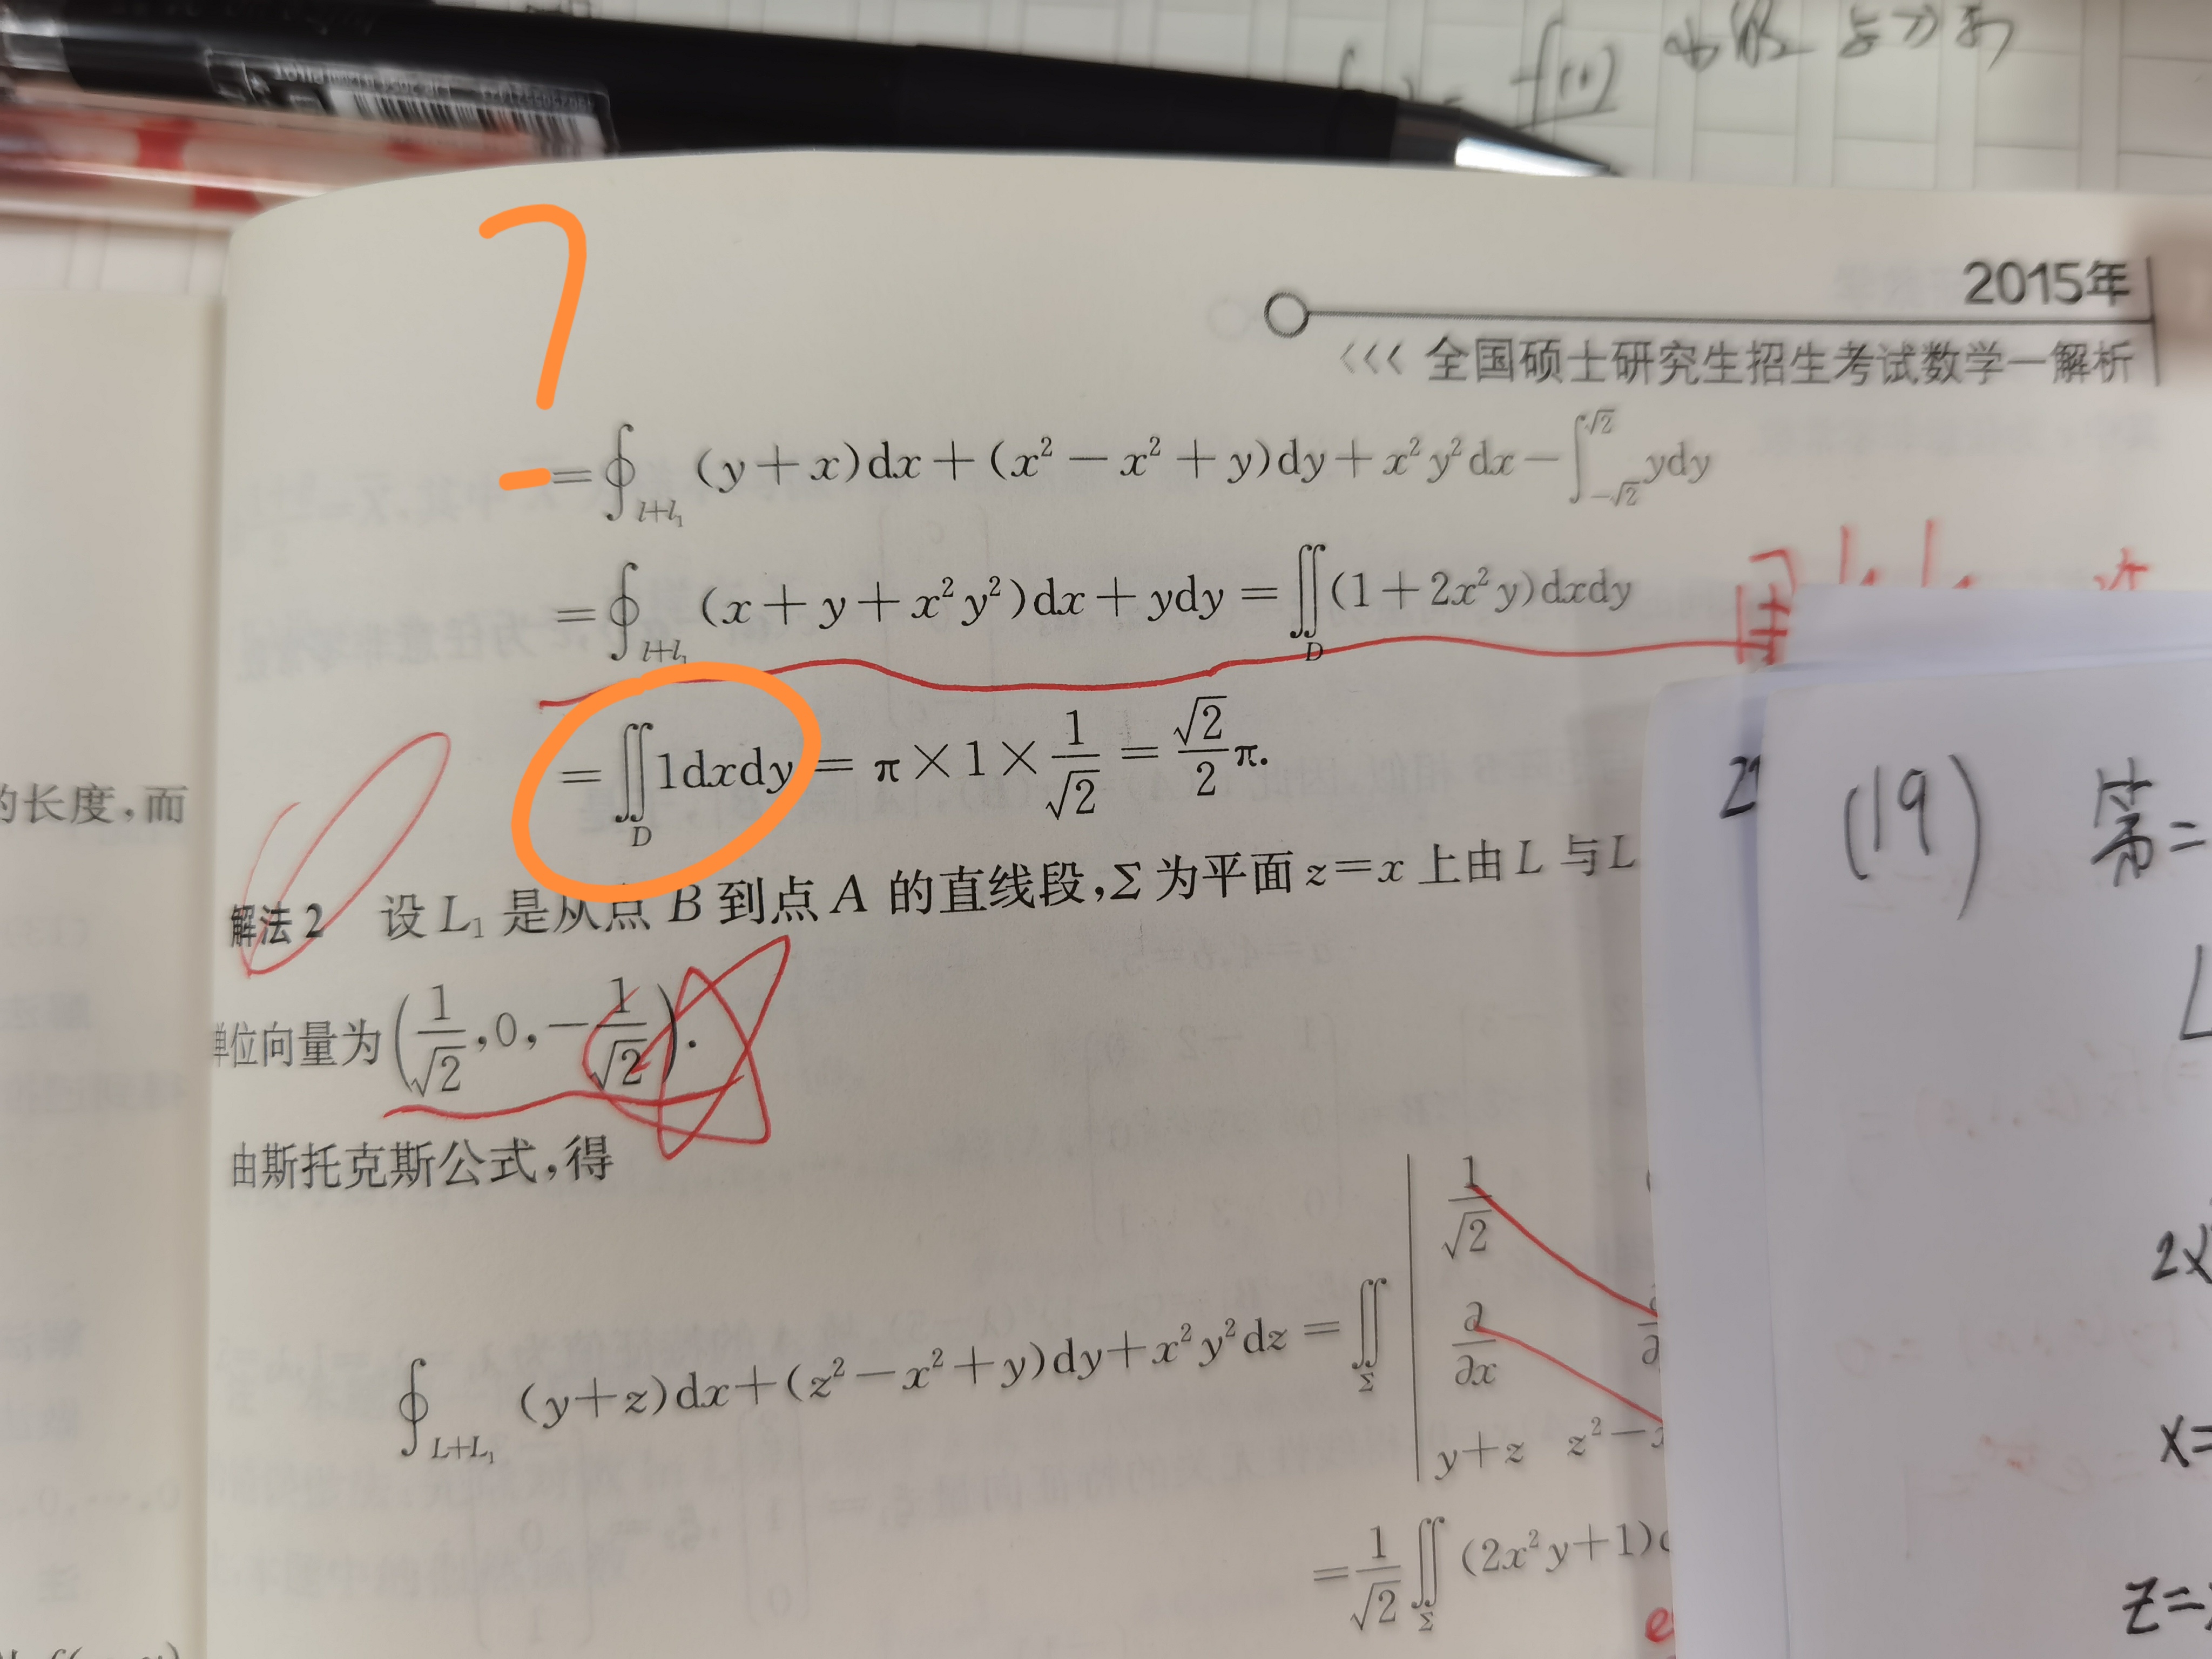 f(x)
2015年
<<< 全国硕士研究生招生考试数学一解析
?
-=∮_{l+l₁} (y+x)dx+(x²-x²+y)dy+x²y²dx-∫_{-√2}^{√2} ydy
=∮_{l+l₁} (x+y+x²y²)dx+ydy=∬_D(1+2x²y)dxdy
=∬_D 1dxdy=π×1×1/√2=√2/2 π.
的长度,而
解法2 设L₁是从点B到点A的直线段,Σ为平面z=x上由L与L
单位向量为(1/√2,0,-1/√2).
由斯托克斯公式,得
∮_{L+L₁} (y+z)dx+(z²-x²+y)dy+x²y²dz=∬_Σ | 1/√2
∂/∂x ∂
y+z z²-
=1/√2 ∬_Σ (2x²y+1)
(19) 第=
L
2x
x=
z=